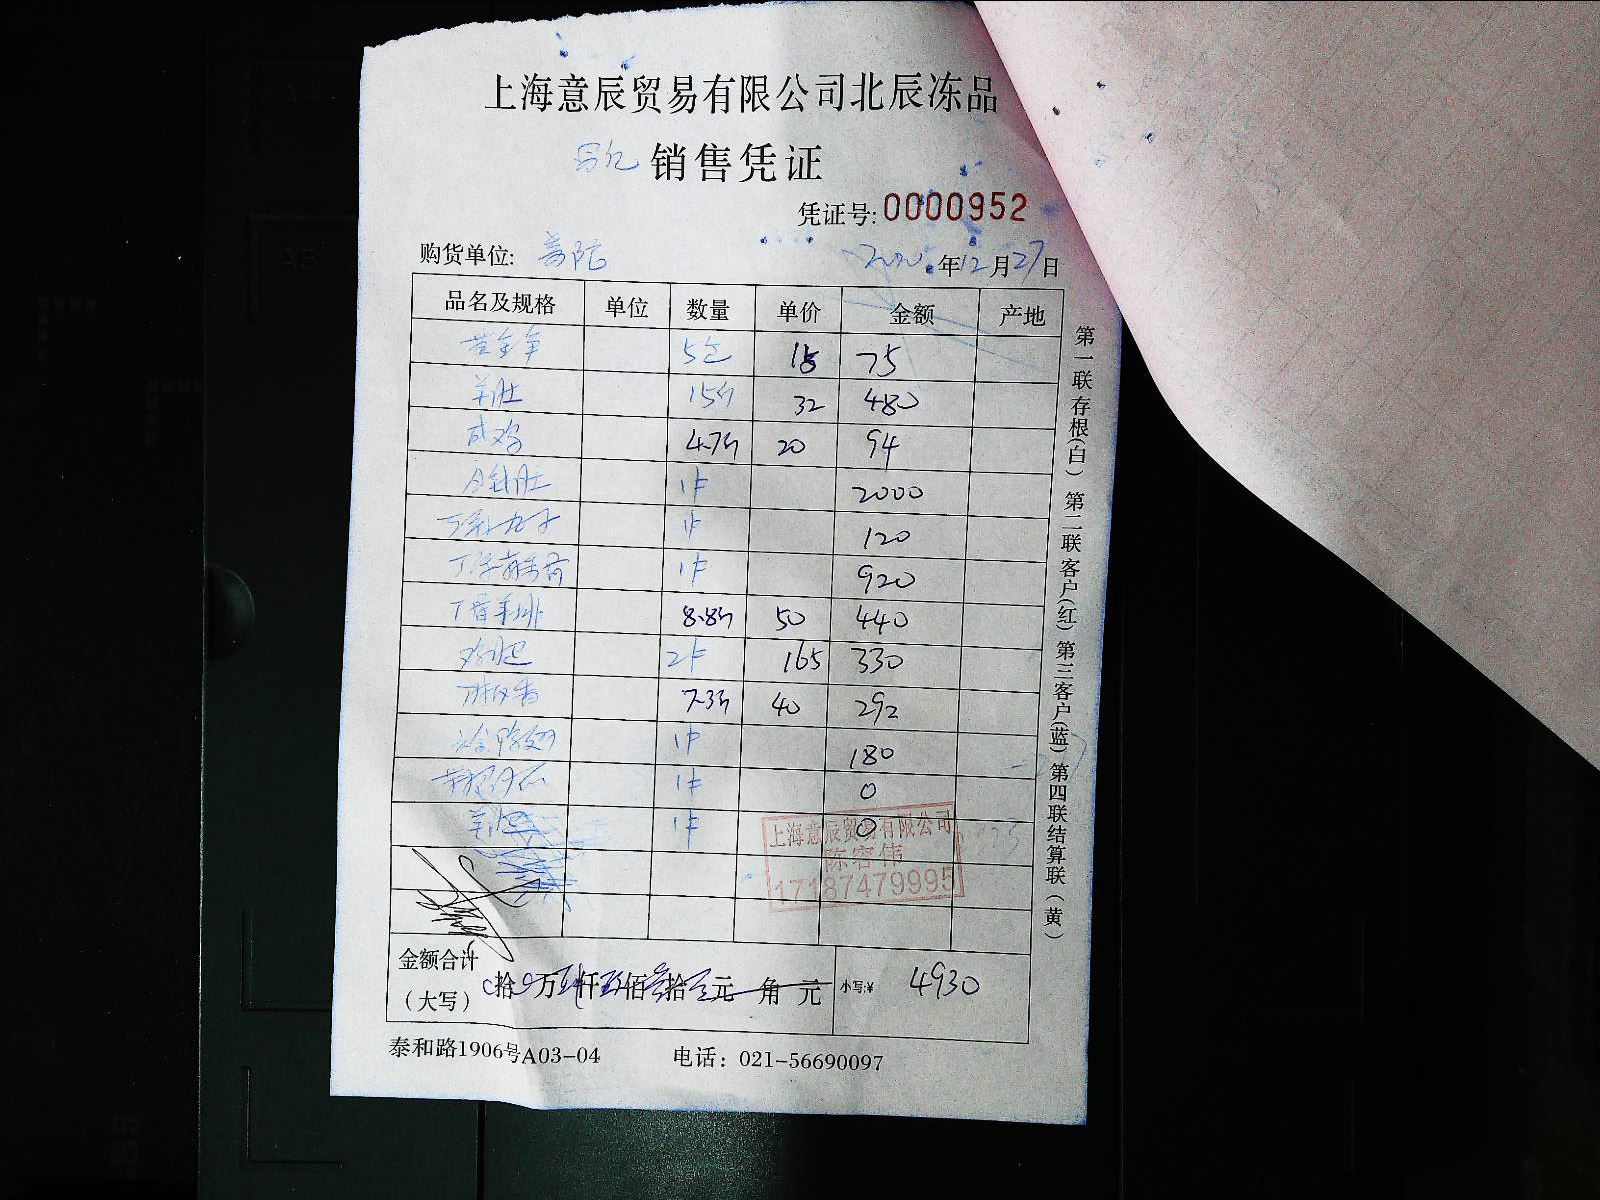 上海意辰贸易有限公司北辰冻品
销售凭证
凭证号: 0000952
购货单位:
年12月27日
品名及规格 单位 数量 单价 金额 产地
黄金 5 15 75
羊肚 15斤 32 480
成鸡 4.7斤 20 94
肚 1件 2000
丸子 1件 120
1件 920
丁骨羊排 8.8斤 50 440
2件 165 330
7.3斤 40 292
1件 180
1件 0
1件 0
上海意辰贸易有限公司
陈容伟
17187479995
金额合计
(大写) 拾 万 仟 佰 拾 元 角 元 小写:¥ 4930
泰和路1906号A03-04 电话: 021-56690097
第一联存根(白) 第二联客户(红) 第三客户(蓝) 第四联结算联(黄)